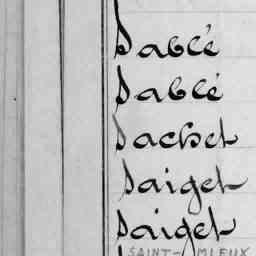 Sablé
Sablé
Sachet
Saiget
Saiget
SAINT-MIEUX